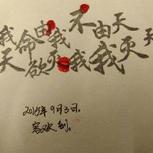 我命由我不由天
天欲灭我我灭天
2015年9月3日.